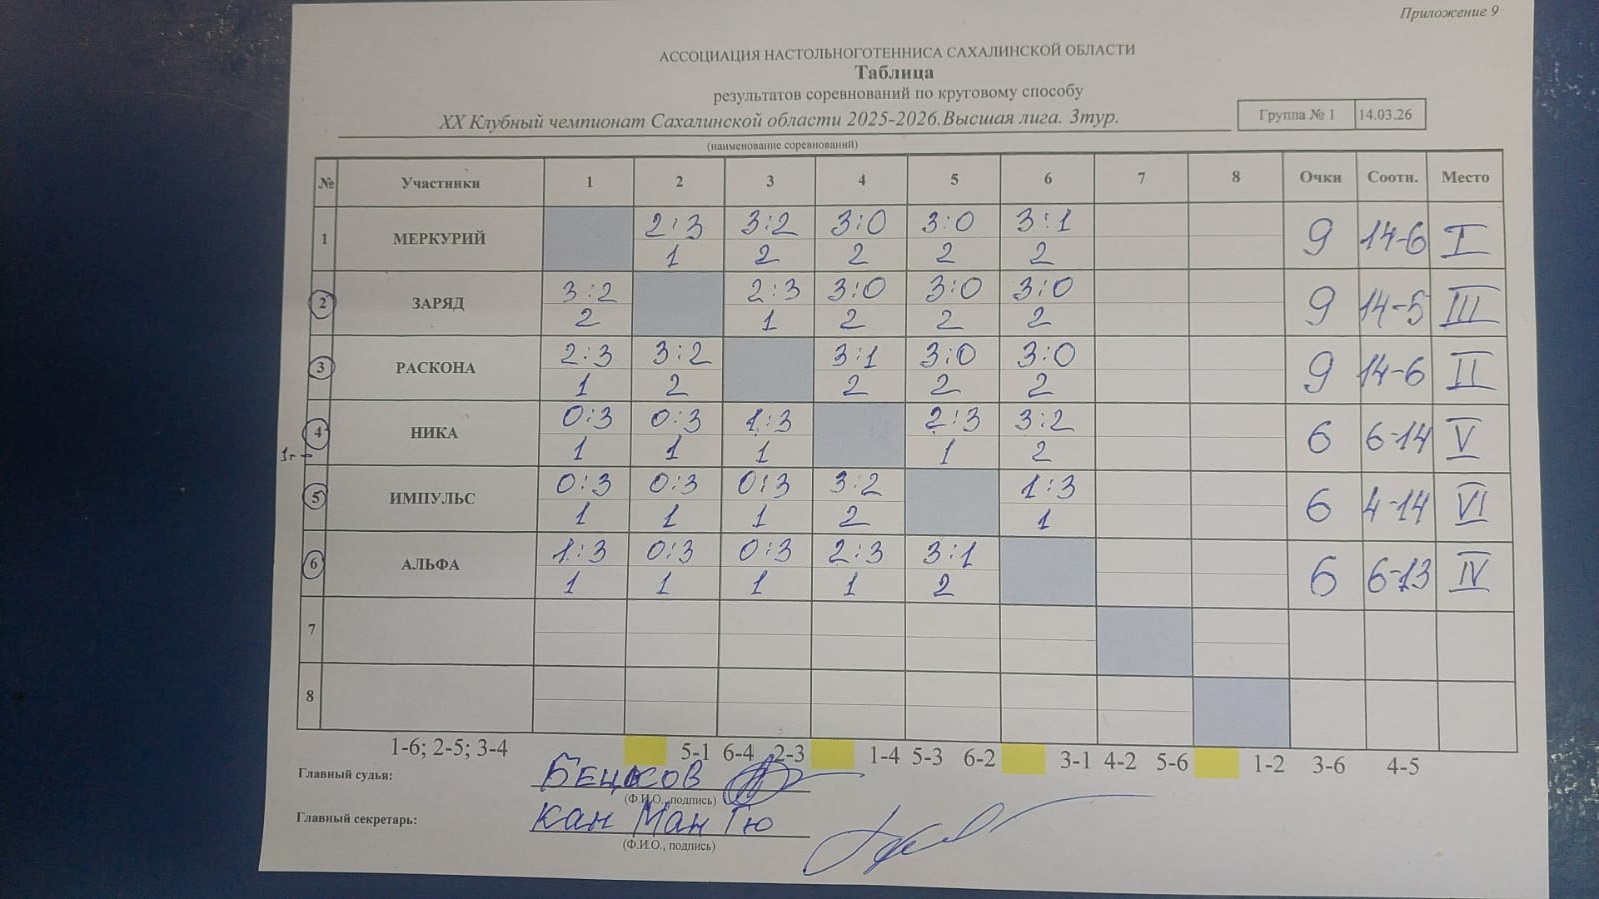 Приложение 9
АССОЦИАЦИЯ НАСТОЛЬНОГОТЕННИСА САХАЛИНСКОЙ ОБЛАСТИ
Таблица
результатов соревнований по круговому способу
XX Клубный чемпионат Сахалинской области 2025-2026.Высшая лига. 3тур.
Группа № 1 14.03.26
(наименование соревнований)
№ Участники 1 2 3 4 5 6 7 8 Очки Соотн. Место
1 МЕРКУРИЙ 2:3 3:2 3:0 3:0 3:1 9 14-6 I
1 2 2 2 2
2 ЗАРЯД 3:2 2:3 3:0 3:0 3:0 9 14-5 III
2 1 2 2 2
3 РАСКОНА 2:3 3:2 3:1 3:0 3:0 9 14-6 II
1 2 2 2 2
4 НИКА 0:3 0:3 1:3 2:3 3:2 6 6-14 V
1 1 1 1 2
5 ИМПУЛЬС 0:3 0:3 0:3 3:2 1:3 6 4-14 VI
1 1 1 2 1
6 АЛЬФА 1:3 0:3 0:3 2:3 3:1 6 6-13 IV
1 1 1 1 2
7
8
1-6; 2-5; 3-4 5-1 6-4 2-3 1-4 5-3 6-2 3-1 4-2 5-6 1-2 3-6 4-5
Главный судья:
(Ф.И.О., подпись)
Главный секретарь: Кан Ман Гю
(Ф.И.О., подпись)